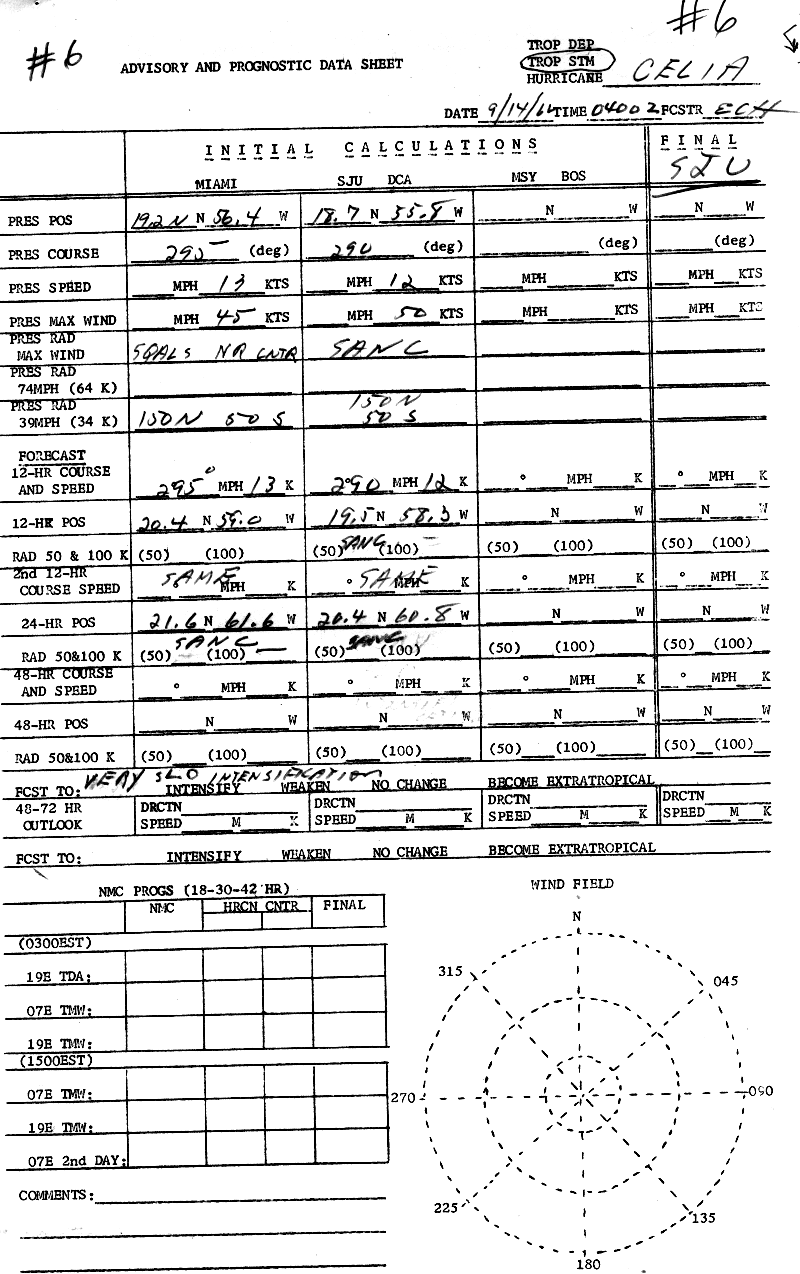 #6
#6
ADVISORY AND PROGNOSTIC DATA SHEET
TROP DEP
TROP STM
HURRICANE CELIA
DATE 9/14/62 TIME 0400Z FCSTR ECH
INITIAL CALCULATIONS FINAL
MIAMI SJU DCA MSY BOS SJU
PRES POS 19.2N N 56.4 W 18.7 N 55.8 W N W N W
PRES COURSE 295 (deg) 290 (deg) (deg) (deg)
PRES SPEED MPH 13 KTS MPH 12 KTS MPH KTS MPH KTS
PRES MAX WIND MPH 45 KTS MPH 50 KTS MPH KTS MPH KTS
PRES RAD
MAX WIND SQALS NR CNTR SANC
PRES RAD
74MPH (64 K)
PRES RAD 150 N
39MPH (34 K) 150N 50 S 50 S
FORECAST
12-HR COURSE
AND SPEED 295° MPH 13 K 290 MPH 12 K ° MPH K ° MPH K
12-HR POS 20.4 N 59.0 W 19.5 N 58.3 W N W N W
RAD 50 & 100 K (50) (100) (50) SANC (100) (50) (100) (50) (100)
2nd 12-HR
COURSE SPEED SAME MPH K ° SAME MPH K ° MPH K ° MPH K
24-HR POS 21.6 N 61.6 W 20.4 N 60.8 W N W N W
RAD 50&100 K (50) SANC (100) (50) SANC (100) (50) (100) (50) (100)
48-HR COURSE
AND SPEED ° MPH K ° MPH K ° MPH K ° MPH K
48-HR POS N W N W N W N W
RAD 50&100 K (50) (100) (50) (100) (50) (100) (50) (100)
VERY SLO INTENSIFICATION
FCST TO: INTENSIFY WEAKEN NO CHANGE BECOME EXTRATROPICAL
48-72 HR DRCTN DRCTN DRCTN DRCTN
OUTLOOK SPEED M K SPEED M K SPEED M K SPEED M K
FCST TO: INTENSIFY WEAKEN NO CHANGE BECOME EXTRATROPICAL
NMC PROGS (18-30-42 HR)
NMC HRCN CNTR FINAL
(0300EST)
19E TDA:
07E TMW:
19E TMW:
(1500EST)
07E TMW:
19E TMW:
07E 2nd DAY:
COMMENTS:
WIND FIELD
N
315 045
270 090
225 135
180